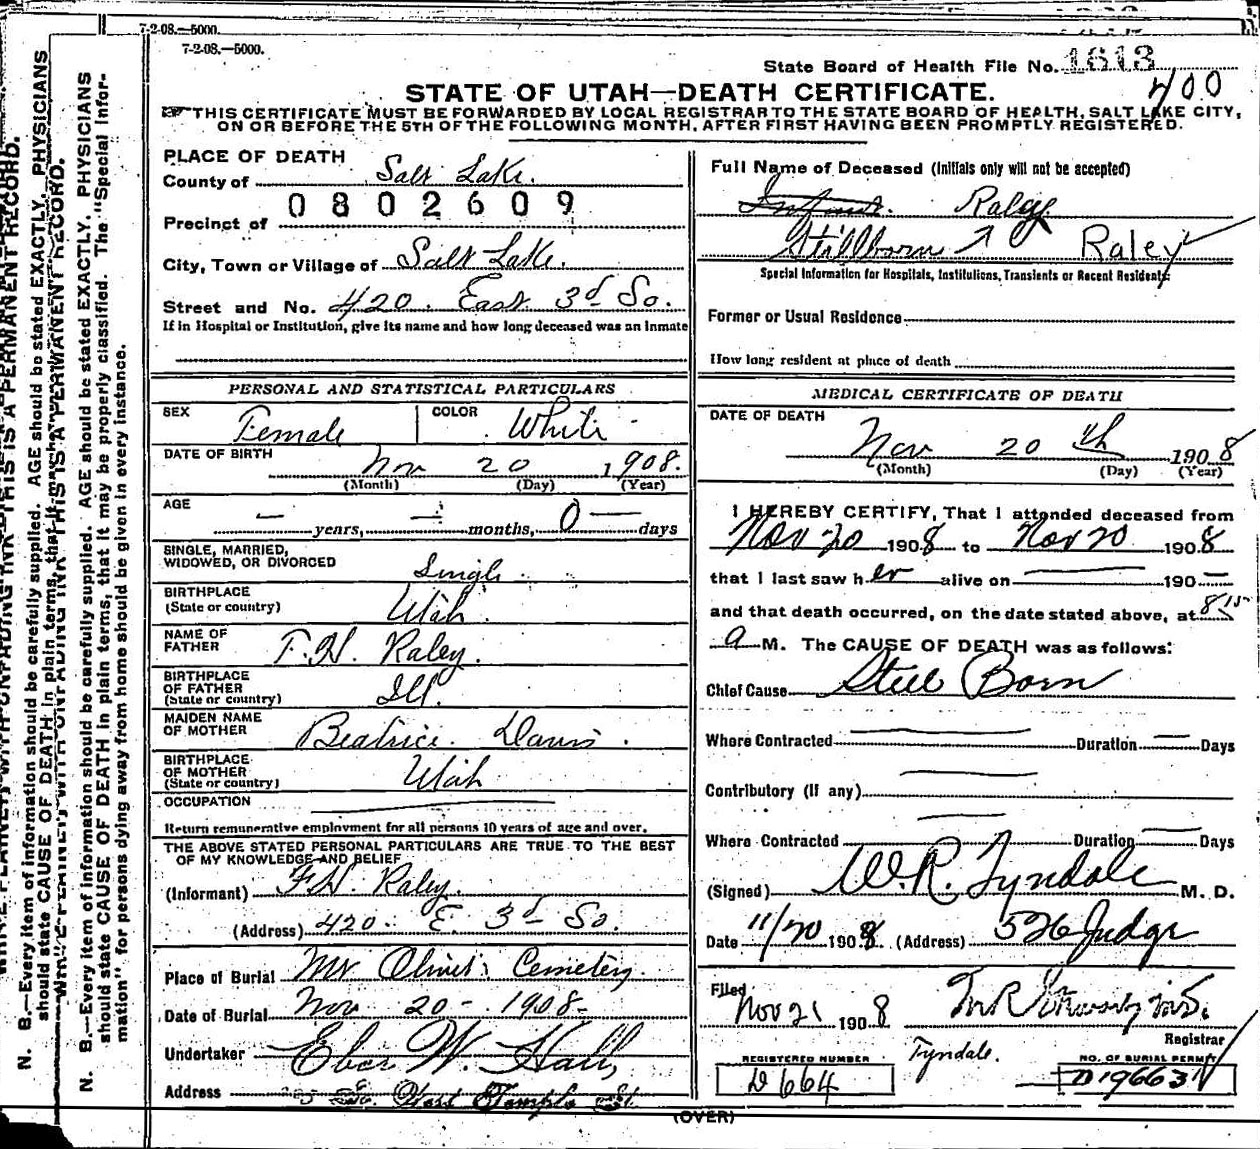 7-2-08.—5000.
7-2-08.—5000.
State Board of Health File No. 1613
400
STATE OF UTAH—DEATH CERTIFICATE.
THIS CERTIFICATE MUST BE FORWARDED BY LOCAL REGISTRAR TO THE STATE BOARD OF HEALTH, SALT LAKE CITY,
ON OR BEFORE THE 5TH OF THE FOLLOWING MONTH, AFTER FIRST HAVING BEEN PROMPTLY REGISTERED.
PLACE OF DEATH
County of Salt Lake.
0802609
Precinct of
City, Town or Village of Salt Lake.
Street and No. 420. East 3d So.
If in Hospital or Institution, give its name and how long deceased was an inmate
PERSONAL AND STATISTICAL PARTICULARS
SEX Female COLOR White
DATE OF BIRTH Nov 20 1908.
(Month) (Day) (Year)
AGE — years, — months, 0 — days
SINGLE, MARRIED,
WIDOWED, OR DIVORCED Single
BIRTHPLACE
(State or country) Utah
NAME OF
FATHER F. H. Raley.
BIRTHPLACE
OF FATHER
(State or country) Ill.
MAIDEN NAME
OF MOTHER Beatrice. Davis.
BIRTHPLACE
OF MOTHER
(State or country) Utah
OCCUPATION
Return remunerative employment for all persons 10 years of age and over.
THE ABOVE STATED PERSONAL PARTICULARS ARE TRUE TO THE BEST
OF MY KNOWLEDGE AND BELIEF
(Informant) F. H. Raley.
(Address) 420. E. 3d So.
Place of Burial Mt Olivet Cemetery.
Date of Burial Nov 20 - 1908-
Undertaker Eber W. Hall,
Address So. West Temple St
Full Name of Deceased (Initials only will not be accepted)
Infant. Raley
Stillborn Raley
Special Information for Hospitals, Institutions, Transients or Recent Residents
Former or Usual Residence
How long resident at place of death
MEDICAL CERTIFICATE OF DEATH
DATE OF DEATH
Nov 20th 1908
(Month) (Day) (Year)
I HEREBY CERTIFY, That I attended deceased from
Nov 20 1908 to Nov 20 1908
that I last saw her alive on — 190—
and that death occurred, on the date stated above, at 8 15
a M. The CAUSE OF DEATH was as follows:
Chief Cause Still Born
Where Contracted — Duration — Days
Contributory (If any) —
Where Contracted — Duration — Days
(Signed) W. R. Tyndale M. D.
Date 11/20 1908 (Address) 526 Judge
Filed
Nov 21 1908
Registrar
Tyndale.
REGISTERED NUMBER
D664
NO. OF BURIAL PERMIT
D19663
(OVER)
N. B.—Every item of information should be carefully supplied. AGE should be stated EXACTLY. PHYSICIANS
should state CAUSE OF DEATH in plain terms, that it may be properly classified. The "Special Infor-
mation" for persons dying away from home should be given in every instance.
N. B.—Every item of information should be carefully supplied. AGE should be stated EXACTLY. PHYSICIANS
should state CAUSE OF DEATH in plain terms, that it may be
THIS IS A PERMANENT RECORD.